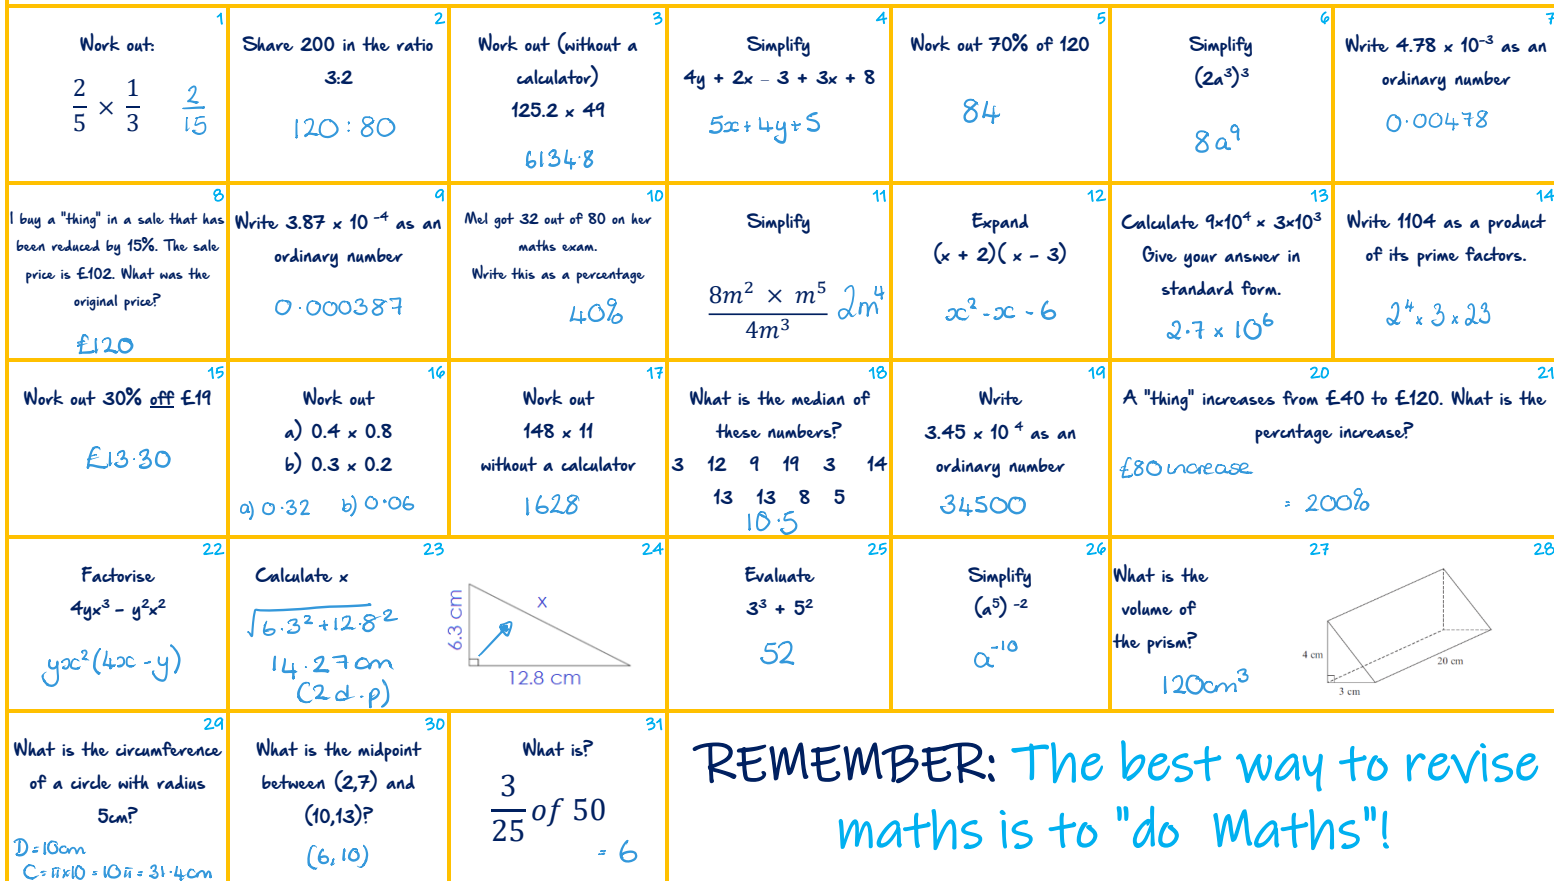 1
Work out:
2/5 × 1/3
2/15
2
Share 200 in the ratio
3:2
120 : 80
3
Work out (without a
calculator)
125.2 x 49
6134.8
4
Simplify
4y + 2x – 3 + 3x + 8
5x + 4y + 5
5
Work out 70% of 120
84
6
Simplify
(2a³)³
8a⁹
7
Write 4.78 x 10⁻³ as an
ordinary number
0.00478
8
I buy a "thing" in a sale that has
been reduced by 15%. The sale
price is £102. What was the
original price?
£120
9
Write 3.87 x 10 ⁻⁴ as an
ordinary number
0.000387
10
Mel got 32 out of 80 on her
maths exam.
Write this as a percentage
40%
11
Simplify
8m² × m⁵ / 4m³
2m⁴
12
Expand
(x + 2)( x – 3)
x² - x - 6
13
Calculate 9x10⁴ x 3x10³
Give your answer in
standard form.
2.7 x 10⁶
14
Write 1104 as a product
of its prime factors.
2⁴ x 3 x 23
15
Work out 30% off £19
£13.30
16
Work out
a) 0.4 x 0.8
b) 0.3 x 0.2
a) 0.32 b) 0.06
17
Work out
148 x 11
without a calculator
1628
18
What is the median of
these numbers?
3 12 9 19 3 14
13 13 8 5
10.5
19
Write
3.45 x 10 ⁴ as an
ordinary number
34500
20
21
A "thing" increases from £40 to £120. What is the
percntage increase?
£80 increase
= 200%
22
Factorise
4yx³ – y²x²
yx²(4x - y)
23
Calculate x
√6.3² + 12.8²
14.27cm
(2 d.p)
24
6.3 cm
x
12.8 cm
25
Evaluate
3³ + 5²
52
26
Simplify
(a⁵) ⁻²
a⁻¹⁰
27
28
What is the
volume of
the prism?
120cm³
4 cm
3 cm
20 cm
29
What is the circumference
of a circle with radius
5cm?
D = 10cm
C = π x 10 = 10π = 31.4cm
30
What is the midpoint
between (2,7) and
(10,13)?
(6, 10)
31
What is?
3/25 of 50
= 6
REMEMBER: The best way to revise
maths is to "do Maths"!